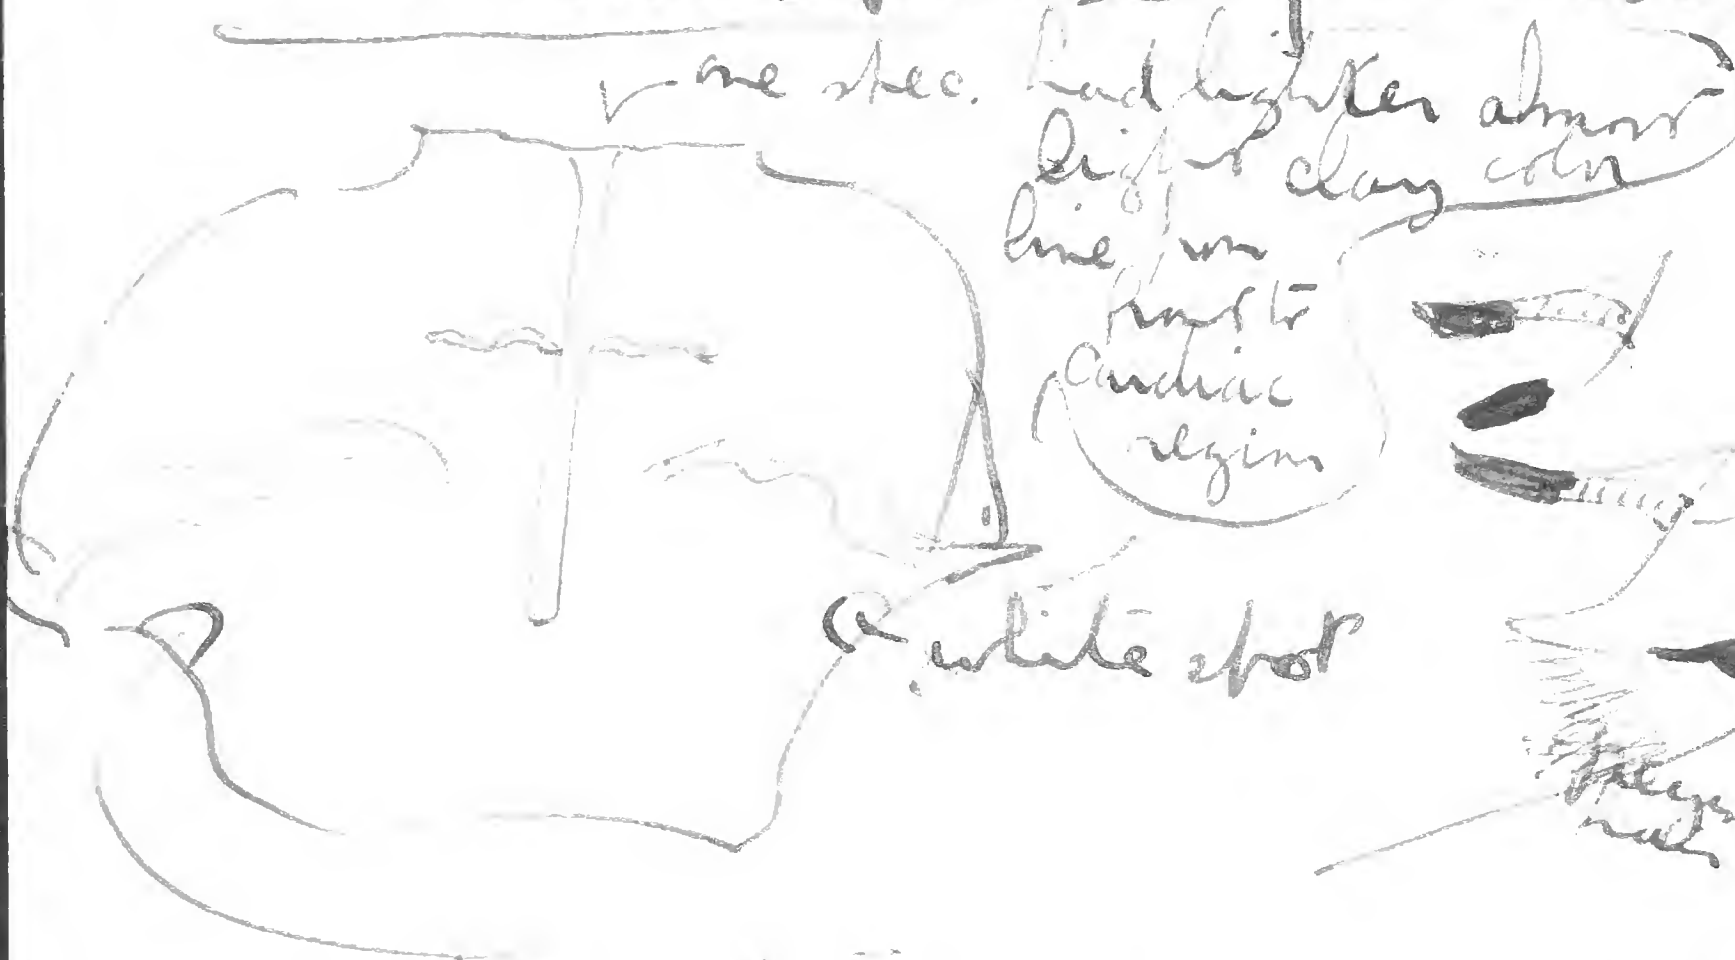 one spec. had lighter almost
light clay color
line from
front to
Cardiac
region
white spot